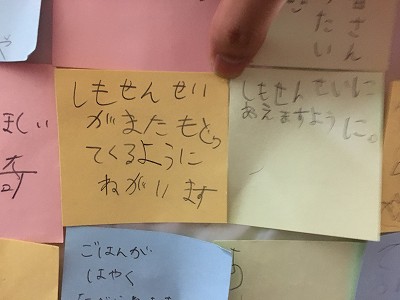 しもせんせい
がまたもどっ
てくるように
ねがいます
しもせんせいに
あえますように。
ごはんが
はやく
ほしい
さん
たい
や